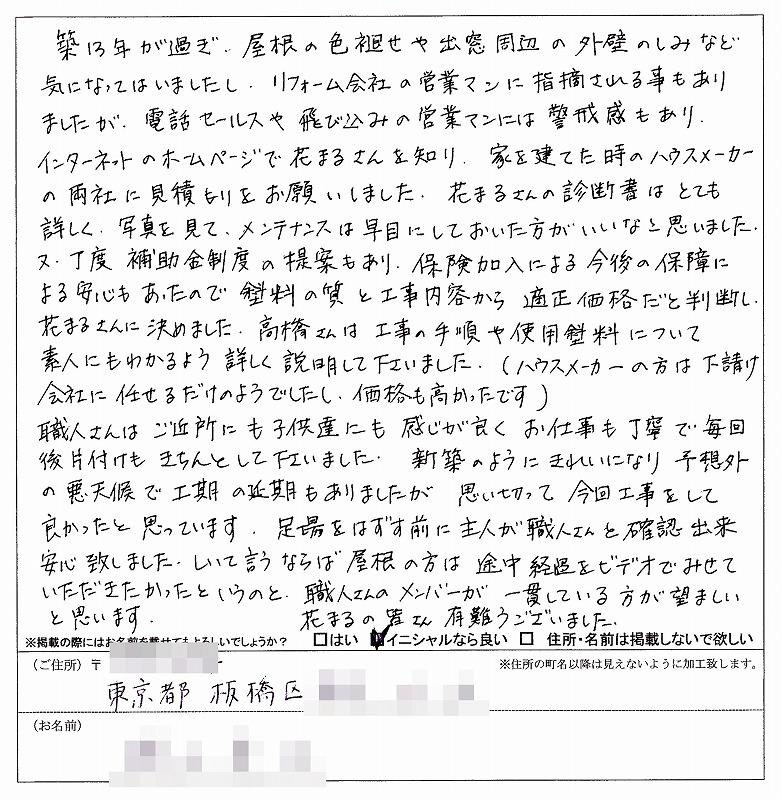 築13年が過ぎ、屋根の色褪せや出窓周辺の外壁のしみなど
気になってはいましたし、リフォーム会社の営業マンに指摘される事もあり
ましたが、電話セールスや飛び込みの営業マンには警戒感もあり、
インターネットのホームページで花まるさんを知り、家を建てた時のハウスメーカー
の両社に見積もりをお願いしました。花まるさんの診断書はとても
詳しく、写真を見て、メンテナンスは早目にしておいた方がいいなと思いました。
又、丁度補助金制度の提案もあり、保険加入による今後の保障に
よる安心もあったので塗料の質と工事内容から適正価格だと判断し、
花まるさんに決めました。高橋さんは工事の手順や使用塗料について
素人にもわかるよう詳しく説明して下さいました。(ハウスメーカーの方は下請け
会社に任せるだけのようでしたし、価格も高かったです)
職人さんはご近所にも子供達にも感じが良くお仕事も丁寧で毎回
後片付けもきちんとして下さいました。新築のようにきれいになり予想外
の悪天候で工期の延期もありましたが思い切って今回工事をして
良かったと思っています。足場をはずす前に主人が職人さんと確認出来
安心致しました。しいて言うならば屋根の方は途中経過をビデオでみせて
いただきたかったというのと、職人さんのメンバーが一貫している方が望ましい
と思います。 花まるの皆さん有難うございました。
※掲載の際にはお名前を載せてもよろしいでしょうか? □はい ☑イニシャルなら良い □ 住所・名前は掲載しないで欲しい
(ご住所)〒 ※住所の町名以降は見えないように加工致します。
東京都 板橋区
(お名前)